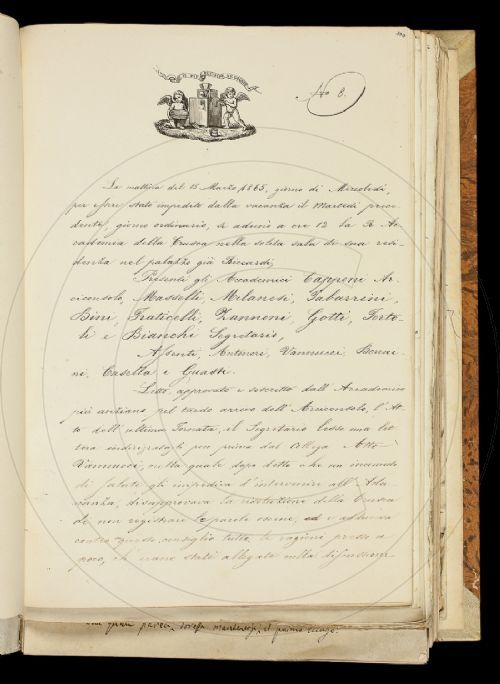 No 8.
La mattina del 15 Marzo 1865, giorno di Mercoledì,
per essere stato impedito dalla vacanza il Martedì prece-
dente, giorno ordinario, si adunò a ore 12 la R. Ac-
cademia della Crusca nella solita sala di sua resi-
denza nel palazzo già Riccardi;
Presenti gli Accademici Capponi Ar-
ciconsolo, Masselli, Milanesi, Tabarrini,
Bini, Fraticelli, Zannoni, Gotti, Torto-
li e Bianchi Segretario,
Assenti, Antinori, Vannucci, Bonai-
ni, Casella e Guasti.
Letto, approvato e soscritto dall'Accademico
più anziano pel tardo arrivo dell'Arciconsolo, l'At-
to dell'ultima Tornata, il Segretario lesse una let-
tera indirizzatagli poco prima dal Collega Atto
Vannucci, nella quale dopo detto che un incomodo
di salute gli impediva d'intervenire all'Adu-
nanza, disapprovava la risoluzione della Crusca
di non registrare le parole oscene, ed adduceva
contro questo consiglio tutte le ragioni presso a
poco, ch'erano state allegate nella discussione
il primo luogo.